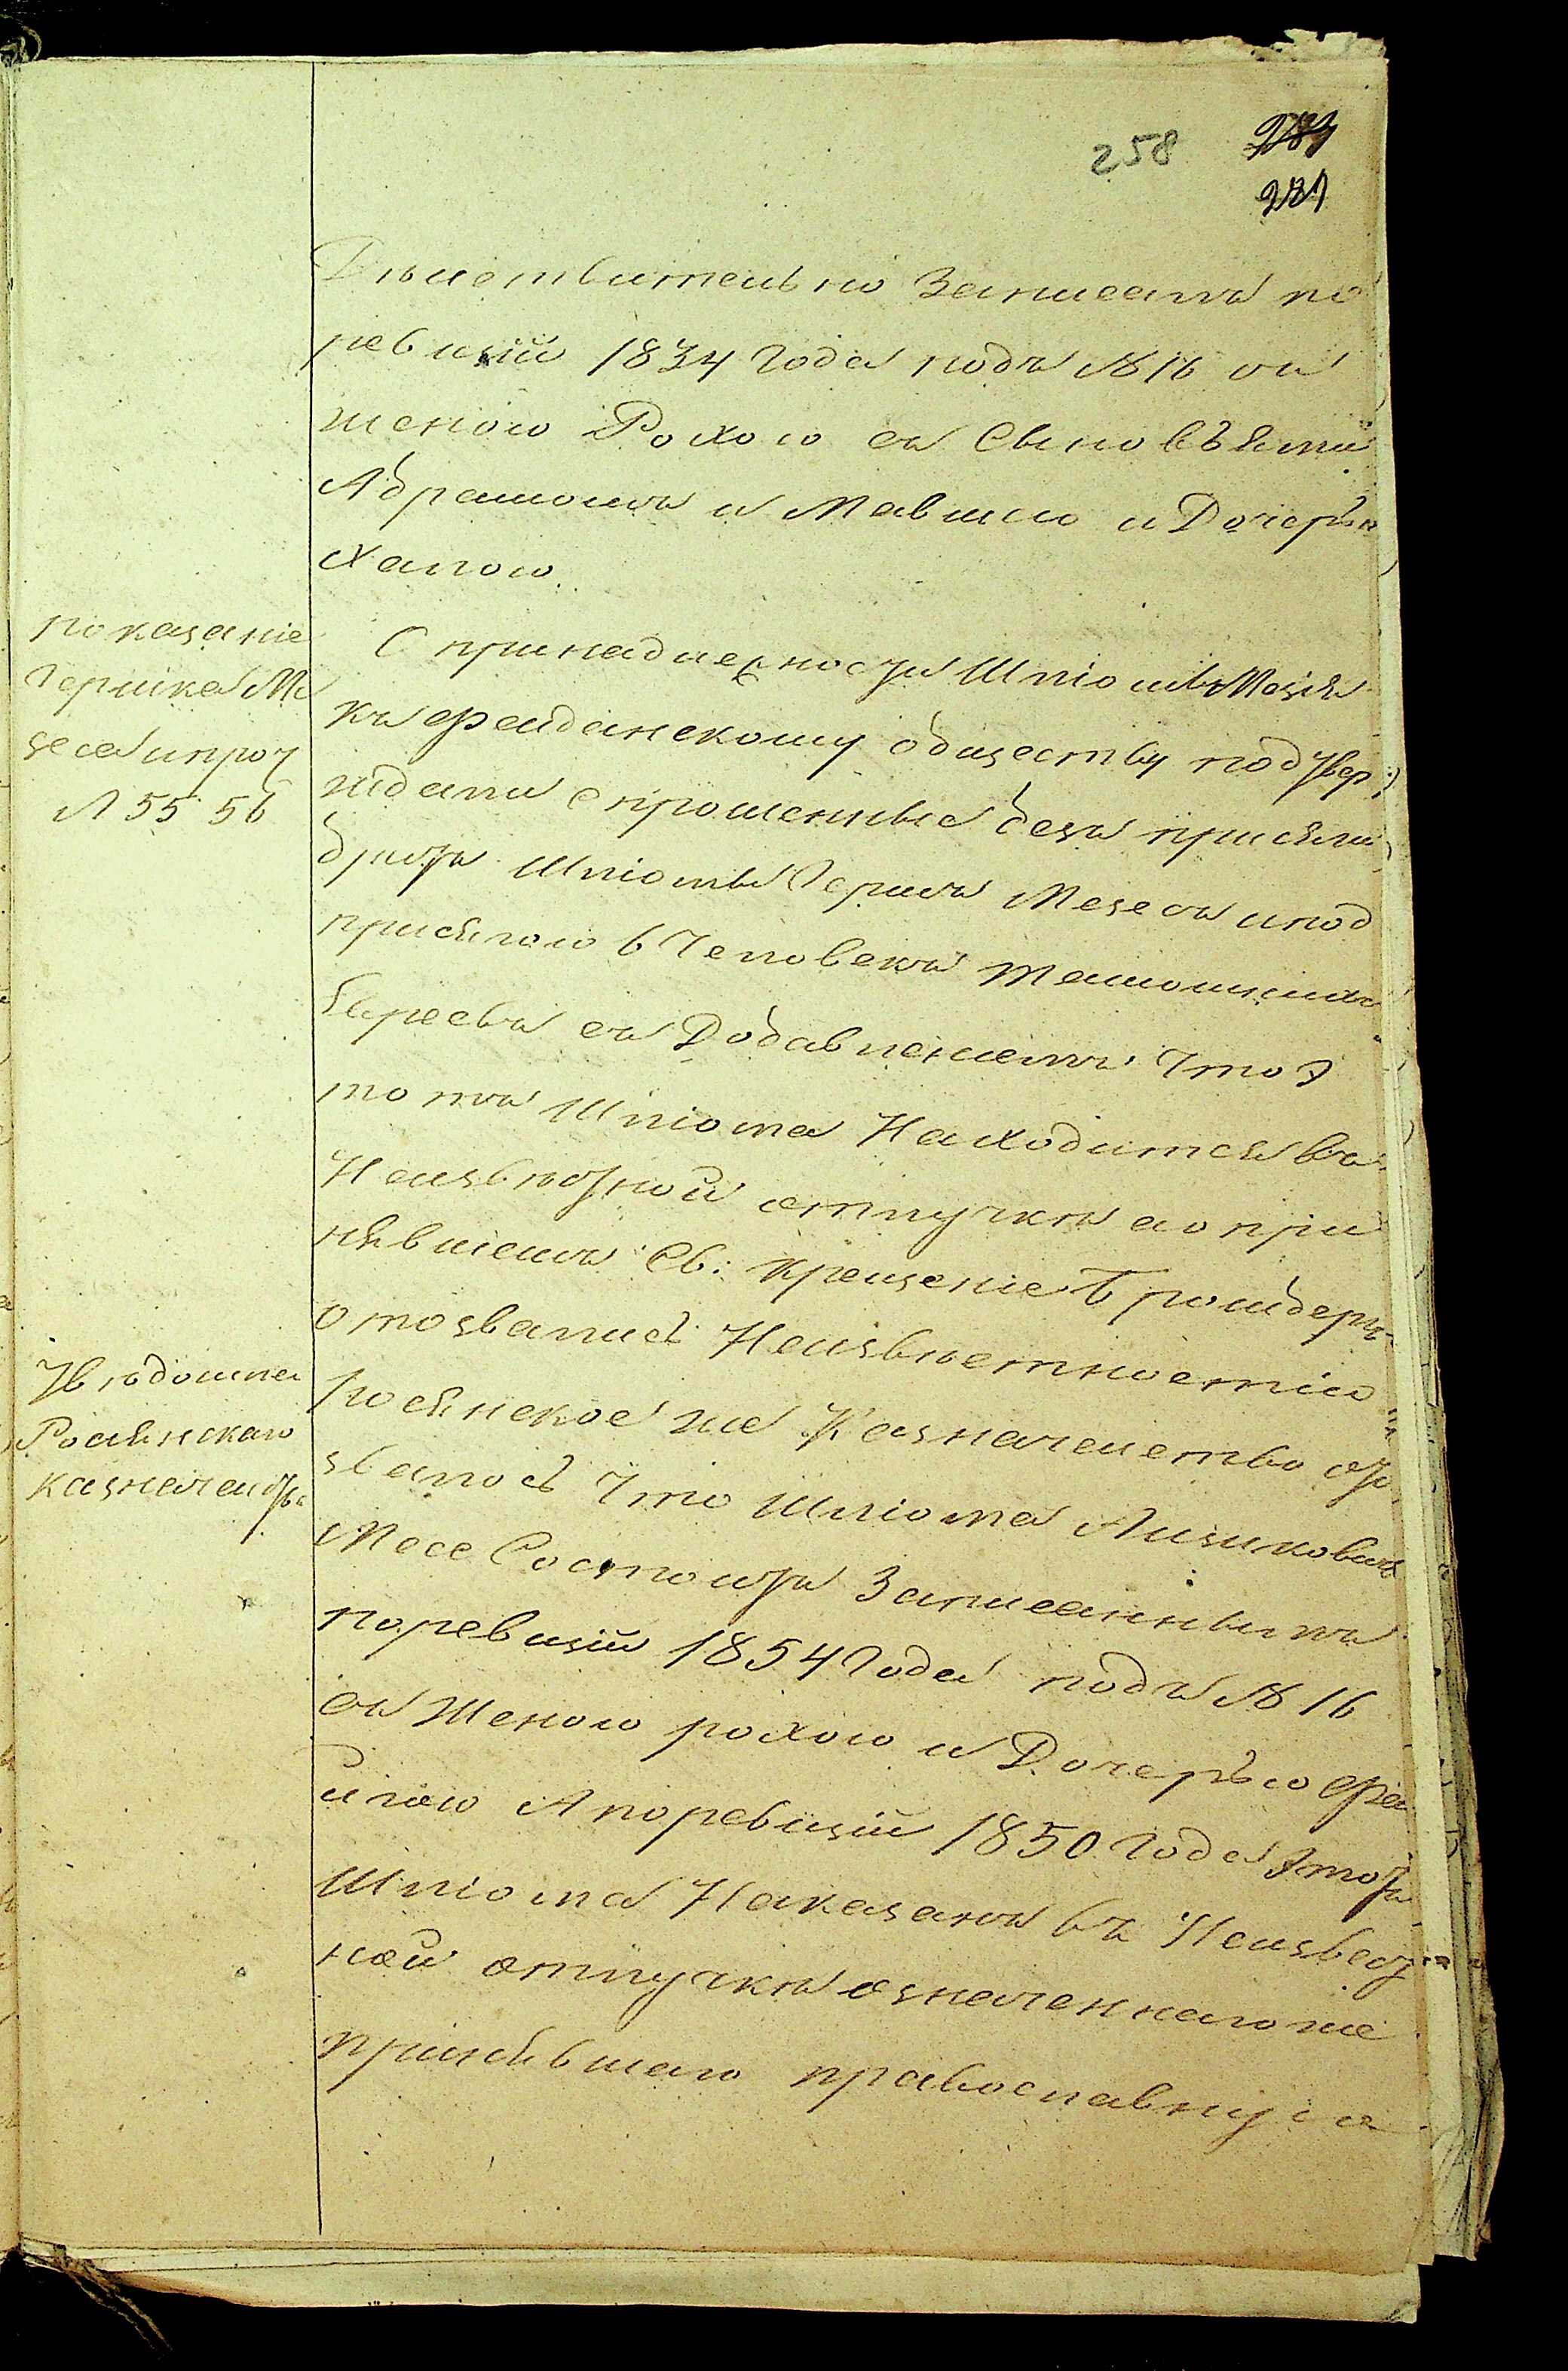 258
281
Дѣйствительно записанъ по
ревизіи 1834 года подъ № 16 съ
женою Рохою съ Сыновьями
Абрамомъ и Мавшею и Дочерью
Ханою.
показаніе
Гершка Ме
зеса и проч
Л 55 56
О принадлежности Шліомы Мезеса
къ Фейданскому обществу подтвер
ждали спрошенные безъ присяги
братъ Шліомы Гершъ Мезесъ и под
присягою 6 Человекъ тамошнихъ
Евреевъ съ Добавленіемъ что э
тотъ Шліома Находится въ
Неизвѣстной отлучкѣ а о при
нявшемъ Св: Крещеніе
отозвались Неизвѣстностію
Увѣдомле
Росіянскаго
казначейства
Росіянское же Казначейство ото
звалось что Шліома Лизиковичъ
Месе Состоитъ Записаннымъ
по ревизіи 1854 Года подъ № 16
съ Женою рохою и Дочерью Фей
гою А по ревизіи 1850 Года этотъ
Шліома Показанъ въ Неизвест
ной отлучкѣ означеннаго же
принявшаго православную